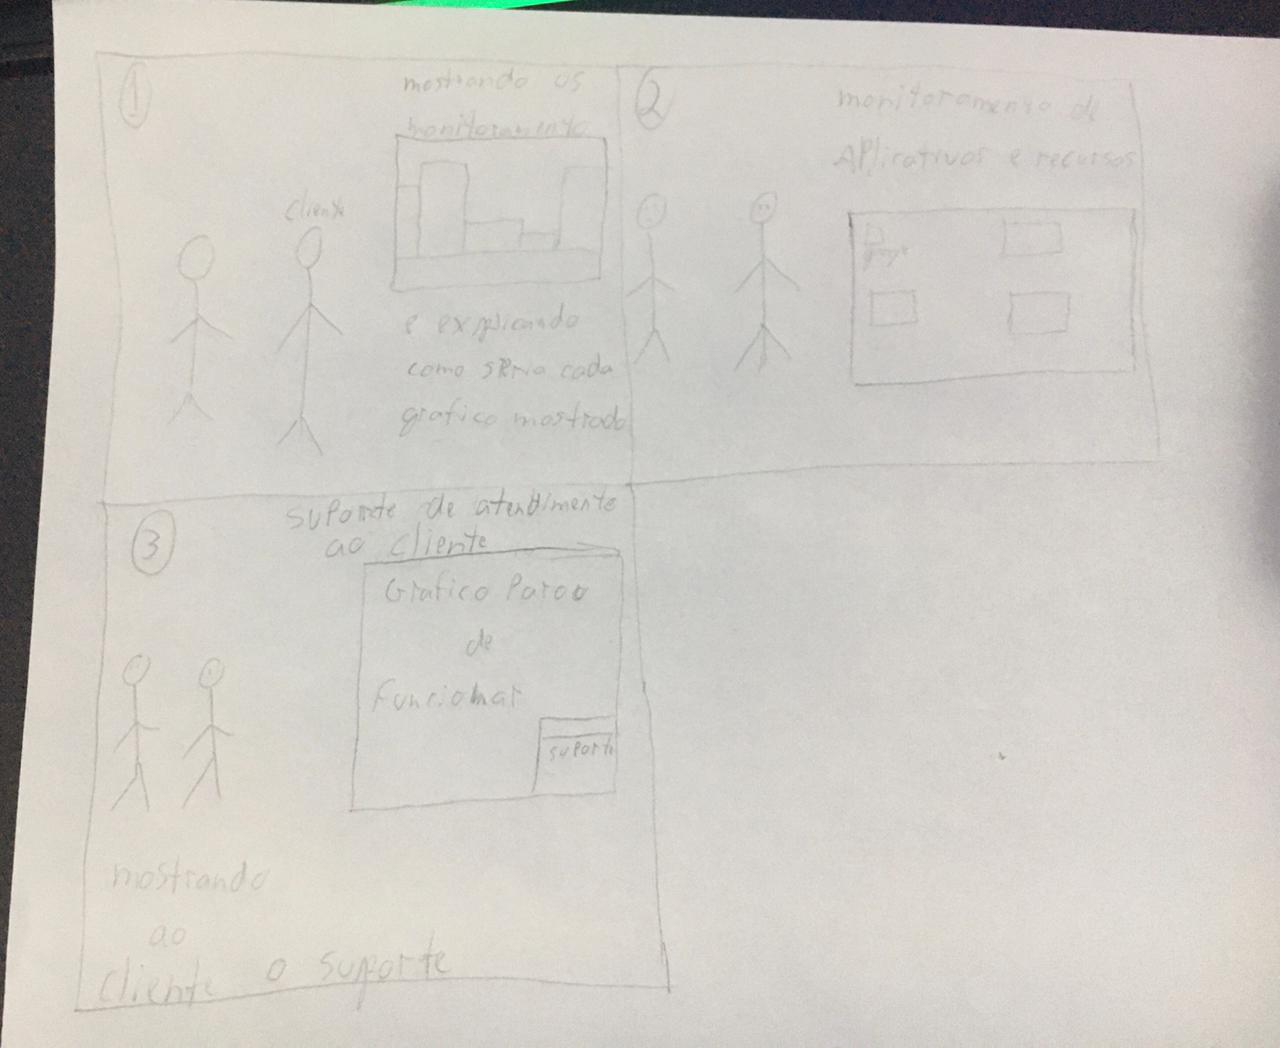 1
mostrando os
monitoramento
cliente
e explicando
como seria cada
grafico mostrado
2
monitoramento de
APlicativos e recursos
3
suporte de atendimento
ao cliente
Grafico Parou
de
Funcionar
suporte
mostrando
ao
cliente o suporte